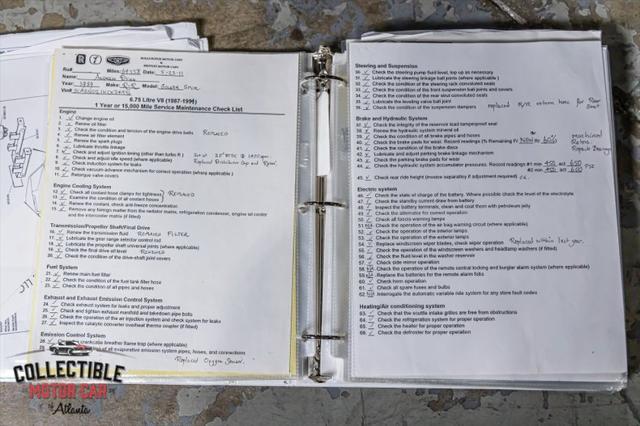 ROLLS-ROYCE MOTOR CARS
BENTLEY MOTOR CARS
Ro#
Miles:
Date: 5-23-11
Name:
Year: 1989
Make: R-R
Model:
Vin#
6.75 Litre V8 (1987-1996)
1 Year or 15,000 Mile Service Maintenance Check List
Engine
1. ✓ Change engine oil
2. ✓ Renew oil filter
3. ✓ Check the condition and tension of the engine drive belts
4. ✓ Renew air filter element
5. ✓ Renew the spark plugs
6. ✓ Lubricate throttle linkage
7. ✓ Check and adjust ignition timing (other than turbo R)
8. ✓ Check and adjust idle speed (where applicable)
9. ✓ Check induction system for leaks
10. ✓ Check vacuum advance mechanism for correct operation (where applicable)
11. ✓ Retorque valve covers
Engine Cooling System
12. ✓ Check all coolant hose clamps for tightness
13. ✓ Examine the condition of all coolant hoses
14. ✓ Renew the coolant, check and freeze concentration
15. ✓ Remove any foreign matter from the radiator matrix, refrigeration condenser, engine oil cooler
and the intercooler matrix (if fitted)
Transmission/Propeller Shaft/Final Drive
16. ✓ Renew the transmission fluid Renew Filter
17. ✓ Lubricate the gear range selector control rod
18. ✓ Lubricate the propeller shaft universal joints (where applicable)
19. ✓ Check the final drive oil level
20. ✓ Check the condition of the drive-shaft joint covers
Fuel System
21. ✓ Renew main fuel filter
22. ✓ Check the condition of the fuel tank filler hose
23. ✓ Check the condition of all pipes and hoses
Exhaust and Exhaust Emission Control System
24. ✓ Check exhaust system for leaks and proper adjustment
25. ✓ Check and tighten exhaust manifold and takedown pipe bolts
26. ✓ Check the operation of the air injection system and check system for leaks
27. ✓ Inspect the catalytic converter overheat thermo coupler (if fitted)
Emission Control System
crankcase breather flame trap (where applicable)
of all evaporative emission system pipes, hoses, and connections
Replaced Oxygen Sensor.
Steering and Suspension
30. ✓ Check the steering pump fluid level, top up as necessary
31. ✓ Lubricate the steering linkage ball joints (where applicable)
32. ✓ Check the condition of the steering rack convoluted seals
33. ✓ Check the condition of the front suspension ball joint covers and seals
34. ✓ Check the condition of the rear strut convoluted seals
35. ✓ Lubricate the leveling valve ball joint
36. ✓ Check the condition of the suspension dampers
Brake and Hydraulic System
38. ✓ Check the integrity of the reservoir load tamperproof seal
39. ✓ Renew the hydraulic system mineral oil
39. ✓ Check the condition of all brake pipes and hoses
40. ✓ Check the brake pads for wear. Record readings (% Remaining) Fr
41. ✓ Check the condition of the brake discs
42. ✓ Lubricate and adjust parking brake linkage mechanism
43. ✓ Check the parking brake pads for wear
44. ✓ Check the hydraulic system accumulator pressures. Record readings #1 min
#2 min
45. ✓ Check car ride height (invoice separately if adjustment required)
Electric system
46. ✓ Check the state of charge of the battery. Where possible check the level of the electrolyte
47. ✓ Check the standby current draw from battery
48. ✓ Inspect the battery terminals, clean and coat them with petroleum jelly
49. ✓ Check the alternator for correct operation
50. ✓ Check all fascia warning lamps
51. N/A Check the operation of the air bag warning circuit (where applicable)
52. ✓ Check the operation of the interior lamps
53. ✓ Check the operation of the exterior lamps
54. ✓ Replace windscreen wiper blades, check wiper operation Replaced within last year.
55. ✓ Check the operation of the windscreen washers and headlamp washers (if fitted)
56. ✓ Check the fluid level in the washer reservoir
57. ✓ Check side mirror operation
58. N/A Check the operation of the remote central locking and burglar alarm system (where applicable)
59. N/A Replace the batteries for the remote alarm fobs
60. ✓ Check horn operation
61. ✓ Check all spare fuses and bulbs
62. N/A Interrogate the automatic variable ride system for any store fault codes
Heating/Air conditioning system
63. ✓ Check that the scuttle intake grilles are free from obstructions
64. ✓ Check the refrigeration system for proper operation
65. ✓ Check the heater for proper operation
66. ✓ Check the defroster for proper operation
COLLECTIBLE
MOTOR CAR
of Atlanta